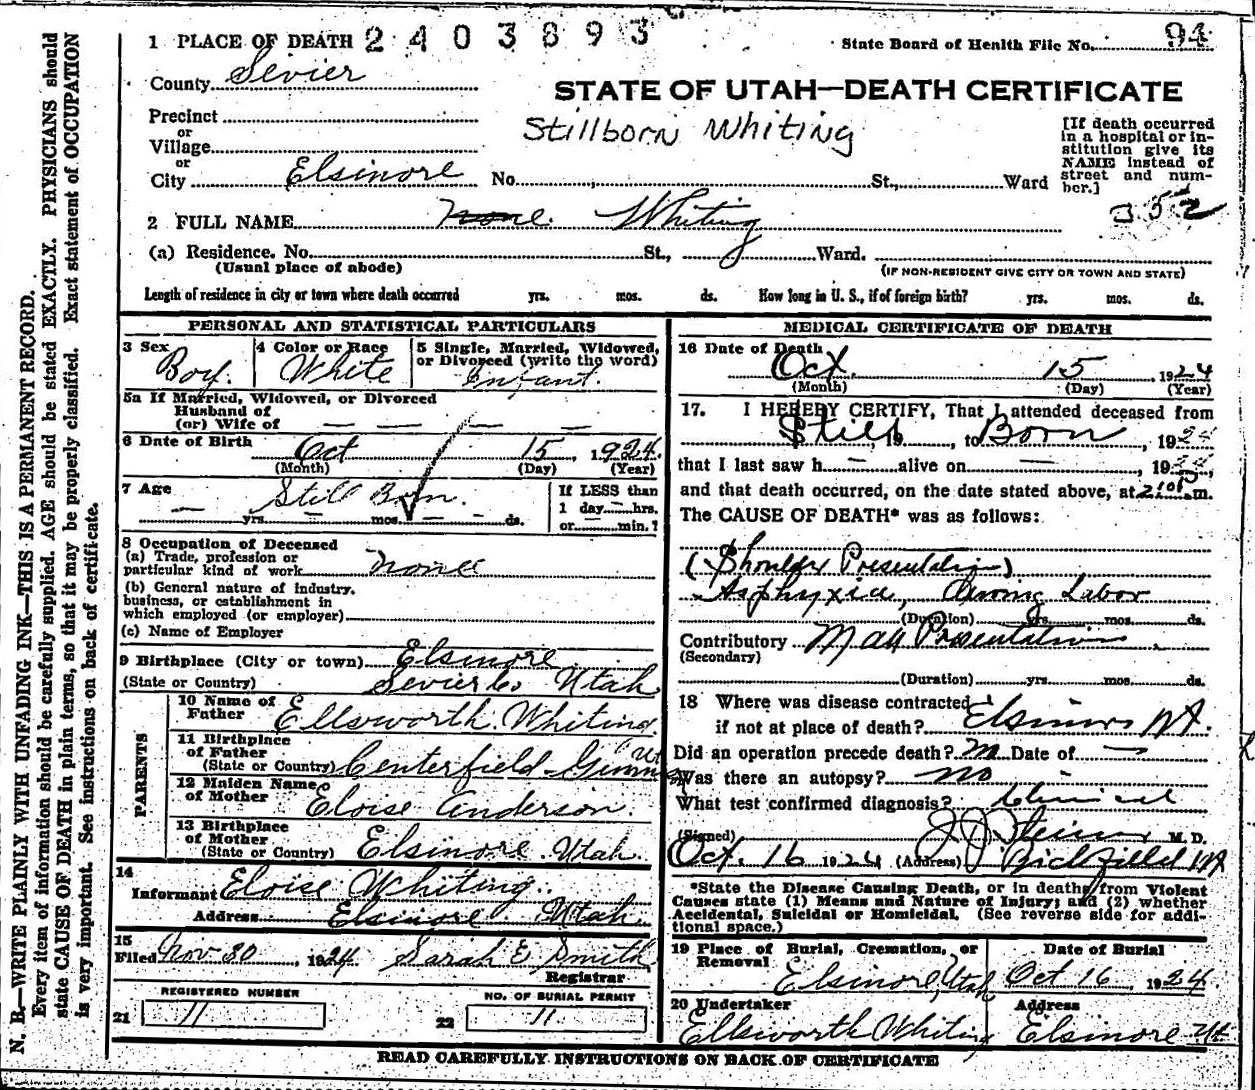 1 PLACE OF DEATH 2403893
State Board of Health File No. 94
County Sevier
STATE OF UTAH—DEATH CERTIFICATE
Precinct
or
Village
or
City Elsinore No. St., Ward
Stillborn Whiting
[If death occurred
in a hospital or in-
stitution give its
NAME instead of
street and num-
ber.]
352
2 FULL NAME None Whiting
(a) Residence. No. St., Ward.
(Usual place of abode) (IF NON-RESIDENT GIVE CITY OR TOWN AND STATE)
Length of residence in city or town where death occurred yrs. mos. ds. How long in U. S., if of foreign birth? yrs. mos. ds.
PERSONAL AND STATISTICAL PARTICULARS
3 Sex 4 Color or Race 5 Single, Married, Widowed,
or Divorced (write the word)
Boy. White Infant.
5a If Married, Widowed, or Divorced
Husband of
(or) Wife of — — — —
6 Date of Birth Oct 15, 1924.
(Month) (Day) (Year)
7 Age Still Born.
— yrs — mos. — ds.
If LESS than
1 day — hrs.
or — min.?
8 Occupation of Deceased
(a) Trade, profession or
particular kind of work None
(b) General nature of industry,
business, or establishment in
which employed (or employer)
(c) Name of Employer
9 Birthplace (City or town) Elsinore
(State or Country) Sevier Co. Utah
PARENTS
10 Name of
Father Ellsworth Whiting
11 Birthplace
of Father
(State or Country) Centerfield Ut
12 Maiden Name
of Mother Eloise Anderson
13 Birthplace
of Mother
(State or Country) Elsinore Utah.
14
Informant Eloise Whiting.
Address Elsinore Utah
15
Filed Nov 30, 1924 Sarah E Smith
Registrar
REGISTERED NUMBER
21 11
NO. OF BURIAL PERMIT
22 11
MEDICAL CERTIFICATE OF DEATH
16 Date of Death Oct. 15 1924
(Month) (Day) (Year)
17. I HEREBY CERTIFY, That I attended deceased from
Still, to Born, 192
that I last saw h — alive on —, 1924,
and that death occurred, on the date stated above, at m.
The CAUSE OF DEATH* was as follows:
(Shoulder Presentation)
Asphyxia, During Labor
(Duration) yrs. mos. ds.
Contributory Presentation
(Secondary)
(Duration) yrs. mos. ds.
18 Where was disease contracted
if not at place of death? Elsinore Ut.
Did an operation precede death? no Date of —
Was there an autopsy? no
What test confirmed diagnosis? Clinical
(Signed) M. D.
Oct. 16 1924 (Address) Richfield Ut
*State the Disease Causing Death, or in deaths from Violent
Causes state (1) Means and Nature of Injury; and (2) whether
Accidental, Suicidal or Homicidal. (See reverse side for addi-
tional space.)
19 Place of Burial, Cremation, or
Removal Elsinore, Utah
Date of Burial
Oct 16, 1924
20 Undertaker Address
Ellsworth Whiting Elsinore Ut
READ CAREFULLY INSTRUCTIONS ON BACK OF CERTIFICATE
N. B.—WRITE PLAINLY WITH UNFADING INK—THIS IS A PERMANENT RECORD.
Every item of information should be carefully supplied. AGE should be stated EXACTLY. PHYSICIANS should
state CAUSE OF DEATH in plain terms, so that it may be properly classified. Exact statement of OCCUPATION
is very important. See instructions on back of certificate.